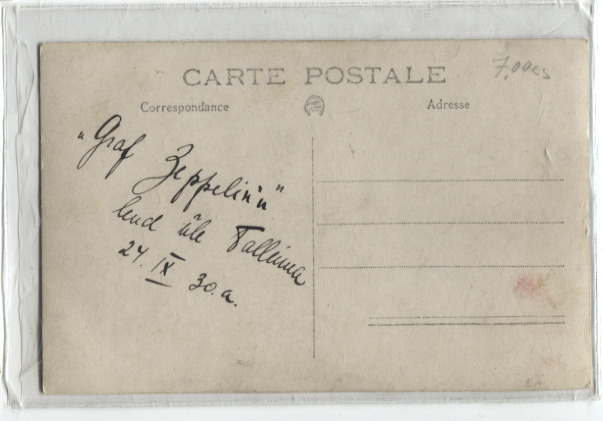 CARTE POSTALE
Correspondance
Adresse
„Graf
Zeppelin'i"
lend üle Tallinna
24. IX 30. a.